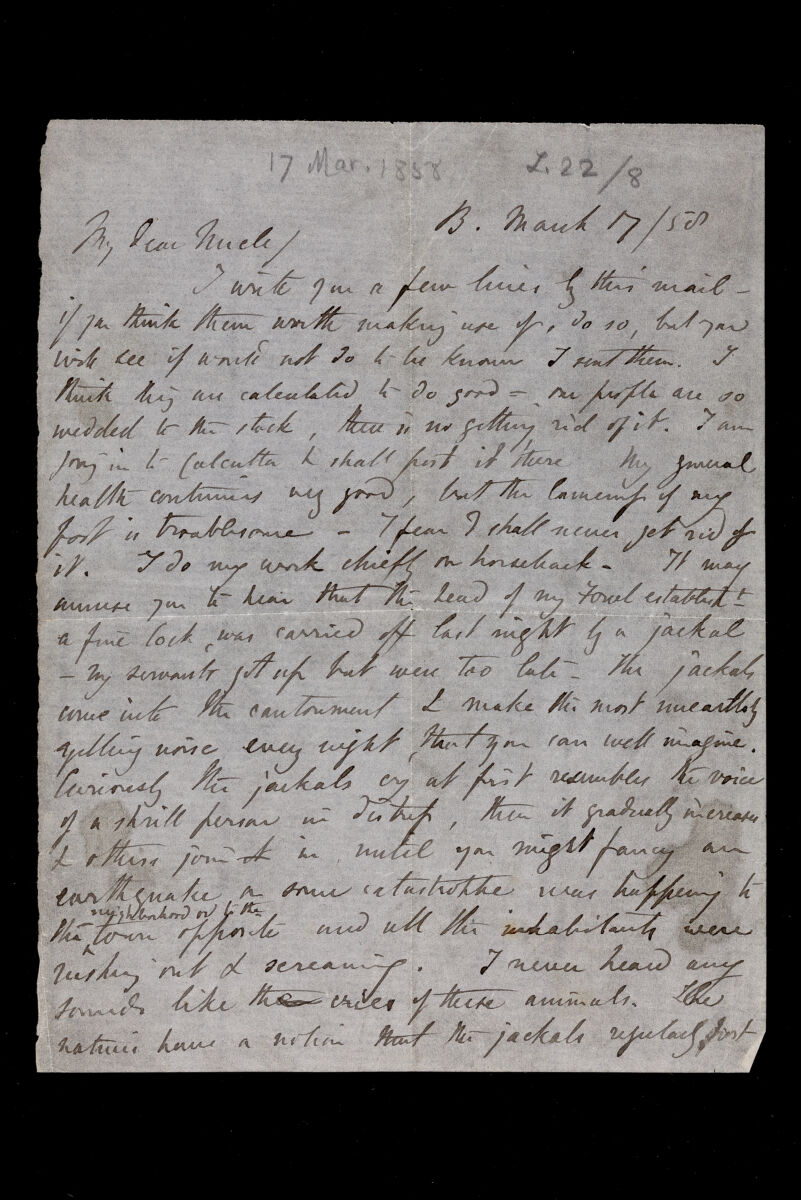 17 Mar. 1858 L.22/8
B. March 17/58
My dear Uncle/
I write you a few lines by this mail –
if you think them worth making use of, do so, but you
will see it would not do to be known I sent them. I
think they are calculated to do good – our people are so
wedded to the stock, there is no getting rid of it. I am
going in to Calcutta & shall post it there My general
health continues very good, but the lameness of my
foot is troublesome – I fear I shall never get rid of
it. I do my work chiefly on horseback – It may
amuse you to hear that the head of my Fowl establisht –
a fine Cock, was carried off last night by a jackal
– my servants got up but were too late – The jackals
come into the cantonment & make the most unearthly
yelling noise every night, that you can well imagine.
Curiously the jackals cry at first resembles the voice
of a shrill person in distress, then it gradually increases
& others join in until you might fancy an
earthquake or some catastrophe was happening to
neighborhood or to the
the town opposite and all the inhabitants were
rushing out & screaming. I never heard any
sounds like the cries of these animals. The
natives have a notion that the jackals regularly post